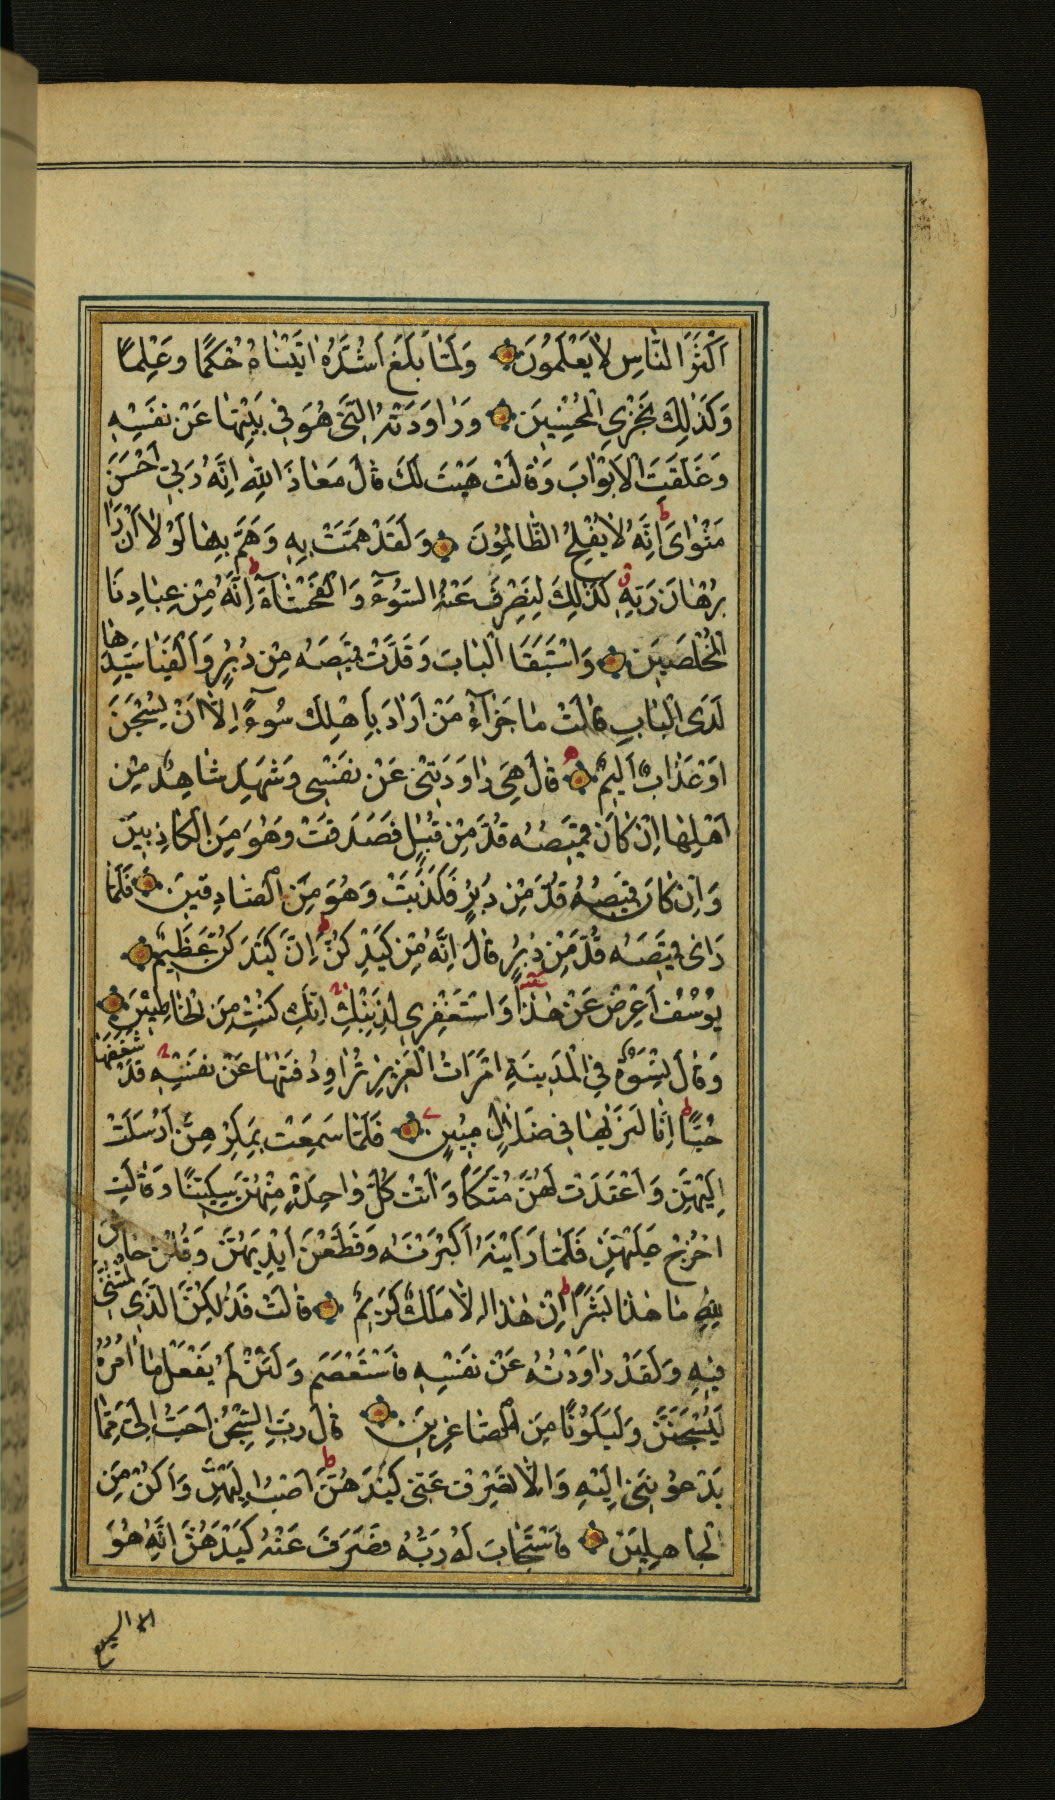 اَكْثَرَ النَّاسِ لَا يَعْلَمُونَ وَلَمَّا بَلَغَ اَشُدَّهُ اٰتَيْنَاهُ حُكْمًا وَعِلْمًا
وَكَذٰلِكَ نَجْزِي الْمُحْسِنِينَ وَرَاوَدَتْهُ الَّتِي هُوَ فِي بَيْتِهَا عَنْ نَفْسِهِ
وَغَلَّقَتِ الْاَبْوَابَ وَقَالَتْ هَيْتَ لَكَ قَالَ مَعَاذَ اللهِ اِنَّهُ رَبِّي اَحْسَنَ
مَثْوَايَ اِنَّهُ لَا يُفْلِحُ الظَّالِمُونَ وَلَقَدْ هَمَّتْ بِهِ وَهَمَّ بِهَا لَوْلَا اَنْ رَاٰ
بُرْهَانَ رَبِّهِ كَذٰلِكَ لِنَصْرِفَ عَنْهُ السُّوۤءَ وَالْفَحْشَاۤءَ اِنَّهُ مِنْ عِبَادِنَا
الْمُخْلَصِينَ وَاسْتَبَقَا الْبَابَ وَقَدَّتْ قَمِيصَهُ مِنْ دُبُرٍ وَاَلْفَيَا سَيِّدَهَا
لَدَى الْبَابِ قَالَتْ مَا جَزَاۤءُ مَنْ اَرَادَ بِاَهْلِكَ سُوۤءًا اِلَّا اَنْ يُسْجَنَ
اَوْ عَذَابٌ اَلِيمٌ قَالَ هِيَ رَاوَدَتْنِي عَنْ نَفْسِي وَشَهِدَ شَاهِدٌ مِنْ
اَهْلِهَا اِنْ كَانَ قَمِيصُهُ قُدَّ مِنْ قُبُلٍ فَصَدَقَتْ وَهُوَ مِنَ الْكَاذِبِينَ
وَاِنْ كَانَ قَمِيصُهُ قُدَّ مِنْ دُبُرٍ فَكَذَبَتْ وَهُوَ مِنَ الصَّادِقِينَ فَلَمَّا
رَاٰى قَمِيصَهُ قُدَّ مِنْ دُبُرٍ قَالَ اِنَّهُ مِنْ كَيْدِكُنَّ اِنَّ كَيْدَكُنَّ عَظِيمٌ
يُوسُفُ اَعْرِضْ عَنْ هٰذَا وَاسْتَغْفِرِي لِذَنْبِكِ اِنَّكِ كُنْتِ مِنَ الْخَاطِئِينَ
وَقَالَ نِسْوَةٌ فِي الْمَدِينَةِ امْرَاَتُ الْعَزِيزِ تُرَاوِدُ فَتٰهَا عَنْ نَفْسِهِ قَدْ شَغَفَهَا
حُبًّا اِنَّا لَنَرٰيهَا فِي ضَلَالٍ مُبِينٍ فَلَمَّا سَمِعَتْ بِمَكْرِهِنَّ اَرْسَلَتْ
اِلَيْهِنَّ وَاَعْتَدَتْ لَهُنَّ مُتَّكَاً وَاٰتَتْ كُلَّ وَاحِدَةٍ مِنْهُنَّ سِكِّينًا وَقَالَتِ
اخْرُجْ عَلَيْهِنَّ فَلَمَّا رَاَيْنَهُ اَكْبَرْنَهُ وَقَطَّعْنَ اَيْدِيَهُنَّ وَقُلْنَ حَاشَ
لِلّٰهِ مَا هٰذَا بَشَرًا اِنْ هٰذَا اِلَّا مَلَكٌ كَرِيمٌ قَالَتْ فَذٰلِكُنَّ الَّذِي لُمْتُنَّنِي
فِيهِ وَلَقَدْ رَاوَدْتُهُ عَنْ نَفْسِهِ فَاسْتَعْصَمَ وَلَئِنْ لَمْ يَفْعَلْ مَا اٰمُرُهُ
لَيُسْجَنَنَّ وَلَيَكُونًا مِنَ الصَّاغِرِينَ قَالَ رَبِّ السِّجْنُ اَحَبُّ اِلَيَّ مِمَّا
يَدْعُونَنِي اِلَيْهِ وَاِلَّا تَصْرِفْ عَنِّي كَيْدَهُنَّ اَصْبُ اِلَيْهِنَّ وَاَكُنْ مِنَ
الْجَاهِلِينَ فَاسْتَجَابَ لَهُ رَبُّهُ فَصَرَفَ عَنْهُ كَيْدَهُنَّ اِنَّهُ هُوَ